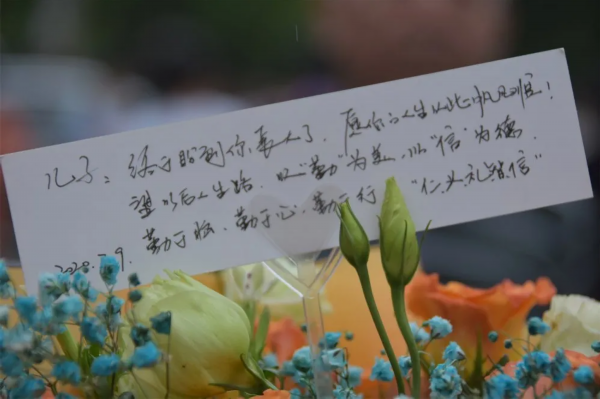 儿子：终于盼到你长人了，愿你的人生从此帆风顺！
望以后人生路，以“勤”为基，以“信”为德，
勤于脑、勤于心、勤于行，“仁义礼智信”
2020.7.9